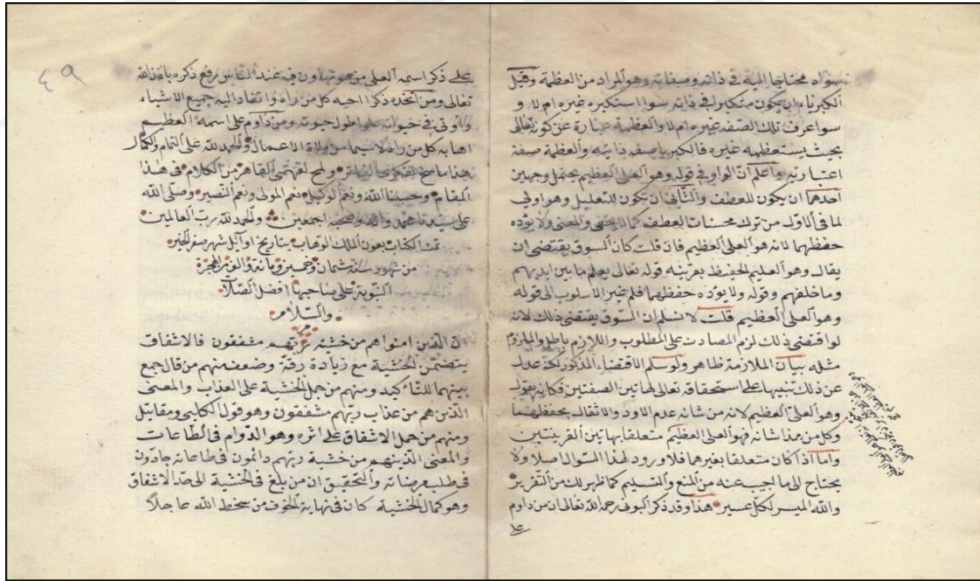 سواه محتاجا اليه فى ذاته وصفاته وهو المراد من العظمة وقيل
الكبرياء ان يكون متكبرا فى ذاته سوا استكبره غيره ام لا و
سوا عرف تلك الصفة غيره ام لا والعظمة عبارة عن كونه تعالى
بحيث يستعظمه غيره فالكبرياء صفة ذاتية والعظمة صفة
اعتبارية واعلم ان الواو فى قوله وهو العلى العظيم يحتمل وجهين
احدهما ان يكون للعطف والثانى ان يكون للتعليل وهو اولى
لما فى الاول من ترك محسنات العطف كما لا يخفى والمعنى ولا يؤده
حفظهما لانه هو العلى العظيم فان قلت كان السوق يقتضى ان
يقال وهو العليم الحفيظ بقرينة قوله تعالى يعلم ما بين ايديهم
وما خلفهم وقوله ولا يؤده حفظهما فلم غير الاسلوب الى قوله
وهو العلى العظيم قلت لا نسلم ان السوق يقتضى ذلك لانه
لو اقتضى ذلك لزم المصادرة على المطلوب واللازم باطل والملزوم
مثله بيان الملازمة ظاهر ولو سلم الاقتضاء المذكور لكنه عدل
عن ذلك تنبيها على استحقاقه تعالى لهاتين الصفتين فكانه يقول
وهو العلى العظيم لانه من شانه عدم الاود والاثقال بحفظهما
وكل من هذا شانه فهو العلى العظيم متعلقا بهاتين القرينتين
واما اذا كان متعلقا بغيرهما فلا ورود لهذا السوال اصلا ولا
يحتاج الى ما اجيب عنه من المنع والتسليم كما ظهر لك من التقرير
والله الميسر لكل عسير هذا وقد ذكر البونى رحمه الله تعالى ان من داوم
٤٩
على ذكر اسمه العلى من هو تهاون فيه عند الناس رفع ذكره باذن الله
تعالى ومن اتخذه ذكرا احبه كل من راه وانقاد اليه جميع الاشياء
واوتى فى حيوانه طول حيوته ومن داوم على اسمه العظيم
اهابه كل من راه لا سيما من ولاة الاعمال والحمد لله على التمام والكمال
هذا ما سنح لفكرى الفاتر ولمح لفهمى القاصر من الكلام فى هذا
المقام وحسبنا الله ونعم الوكيل نعم المولى ونعم النصير وصلى الله
على سيدنا محمد واله وصحبه اجمعين والحمد لله رب العالمين
تمت الكتاب بعون الملك الوهاب بتاريخ اوائل شهر صفر الخير
من شهور سنة ثمان وخمسين ومائة والف من الهجرة
النبوية على صاحبها افضل الصلاة
والسلام
ان الذين امنوا هم من خشية ربهم مشفقون فالاشفاق
يتضمن الخشية مع زيادة رقة وضعف منهم من قال جمع
بينهما للتأكيد ومنهم من حمل الخشية على العذاب والمعنى
الذين هم من عذاب ربهم مشفقون وهو قول الكلبى ومقاتل
ومنهم من حمل الاشفاق على اثره وهو الدوام فى الطاعات
والمعنى الذين هم من خشية ربهم دائمون فى طاعاته جادون
فى طلب مرضاته والتحقيق ان من بلغ فى الخشية الى حد الاشفاق
وهو كمال الخشية كان فى نهاية الخوف من سخط الله عاجلا